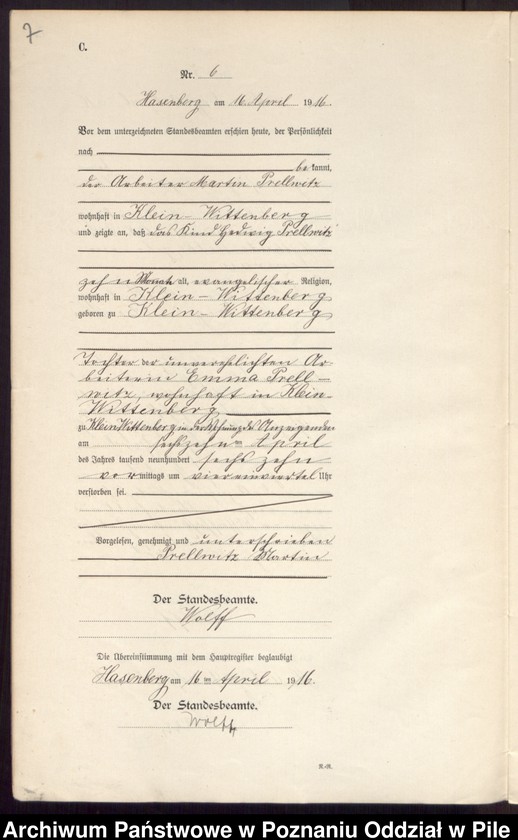 7
C.
Nr. 6
Hasenberg am 16. April 1916.
Vor dem unterzeichneten Standesbeamten erschien heute, der Persönlichkeit
nach
bekannt,
der Arbeiter Martin Prellwitz
wohnhaft in Klein-Wittenberg
und zeigte an, daß das Kind Hedwig Prellwitz
zehn Monate alt, evangelischer Religion,
wohnhaft in Klein-Wittenberg
geboren zu Klein-Wittenberg
Tochter der unverehelichten Ar-
beiterin Emma Prell-
witz, wohnhaft in Klein-
Wittenberg
zu Klein Wittenberg in der Wohnung des Anzeigenden
am sechszehnten April
des Jahres tausend neunhundert sechszehn
vormittags um viereinviertel Uhr
verstorben sei.
Vorgelesen, genehmigt und unterschrieben
Prellwitz Martin
Der Standesbeamte.
Wolff
Die Übereinstimmung mit dem Hauptregister beglaubigt
Hasenberg am 16ten April 1916.
Der Standesbeamte.
Wolff
R.-R.
Archiwum Państwowe w Poznaniu Oddział w Pile